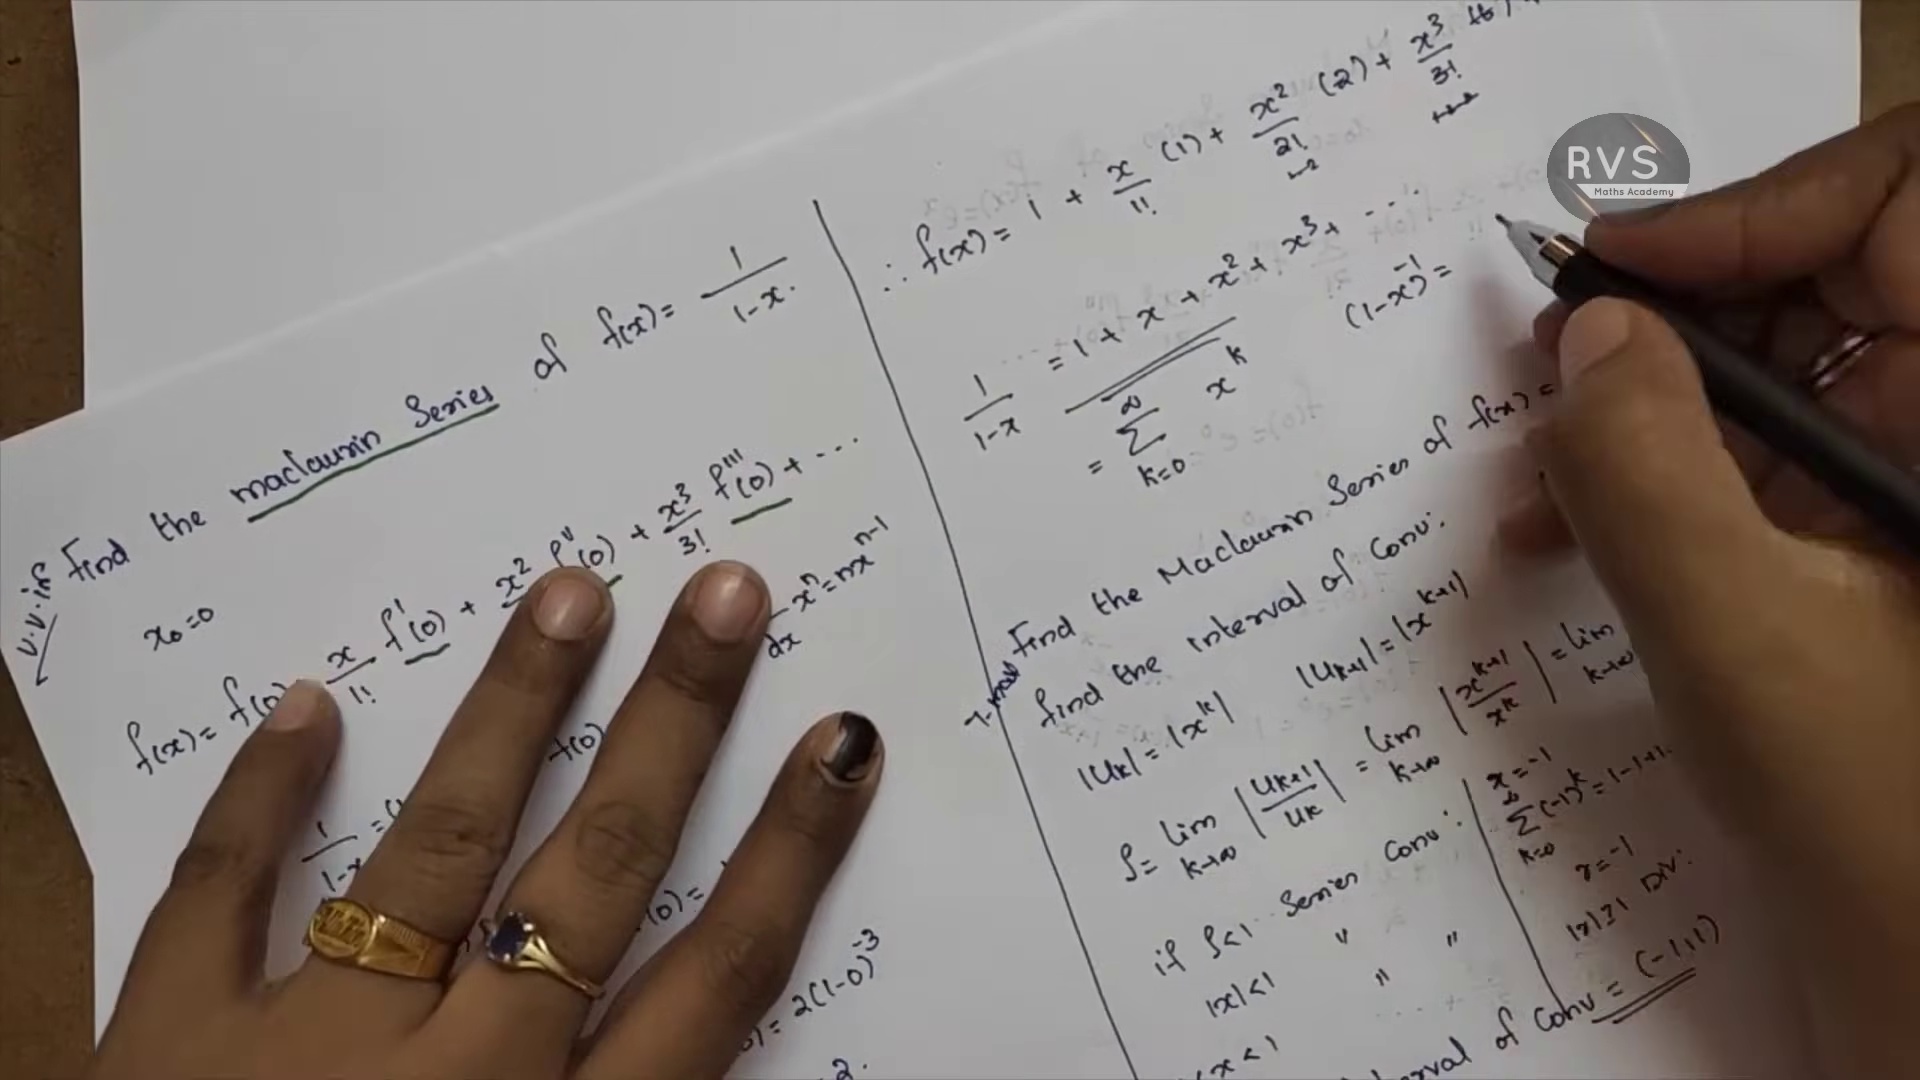 V.V.if Find the maclaurin Series of f(x) = 1/(1-x).
x₀=0
f(x) = f(0) x/1! f'(0) + x² f''(0) + x³/3! f'''(0) + ...
dx xⁿ = nxⁿ⁻¹
f(0)
1/(1-x =(
(0) =
= 2(1-0)⁻³
2.
∴ f(x) = 1 + x/1! (1) + x²/2! (2) + x³/3!
1/(1-x) = 1 + x + x² + x³ + ...
(1-x)⁻¹ =
= ∞ Σ k=0 xᵏ
7-mar Find the Maclaurin Series of f(x) =
find the interval of Conv:
|Uₖ| = |xᵏ| |Uₖ₊₁| = |xᵏ⁺¹|
ρ = lim k→∞ |Uₖ₊₁/Uₖ| = lim k→∞ |xᵏ⁺¹/xᵏ| = lim k→∞
if ρ<1 Series Conv:
|x|<1 " "
x<1 "
x=-1
∞ Σ k=0 (-1)ᵏ = 1-1+1.
r=-1
|x|≥1 Div:
rval of Conv = (-1,1)
RVS
Maths Academy